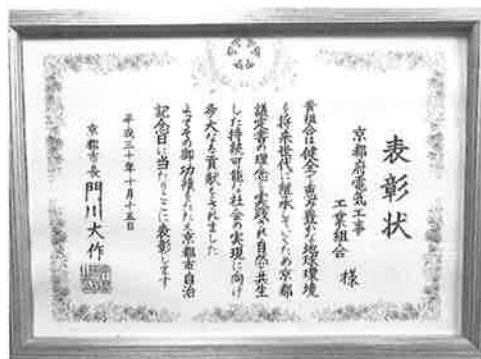 表彰状
京都府電気工事
工業組合 様
貴組合は健全で恵み豊かな地球環境
を将来世代に継承していくため京都
議定書の理念を実践され自然と共生
した持続可能な社会の実現に向け
多大なる貢献をされました
よってその御功績をたたえ京都市自治
記念日に当たりここに表彰します
平成三十年十月十五日
京都市長 門川大作